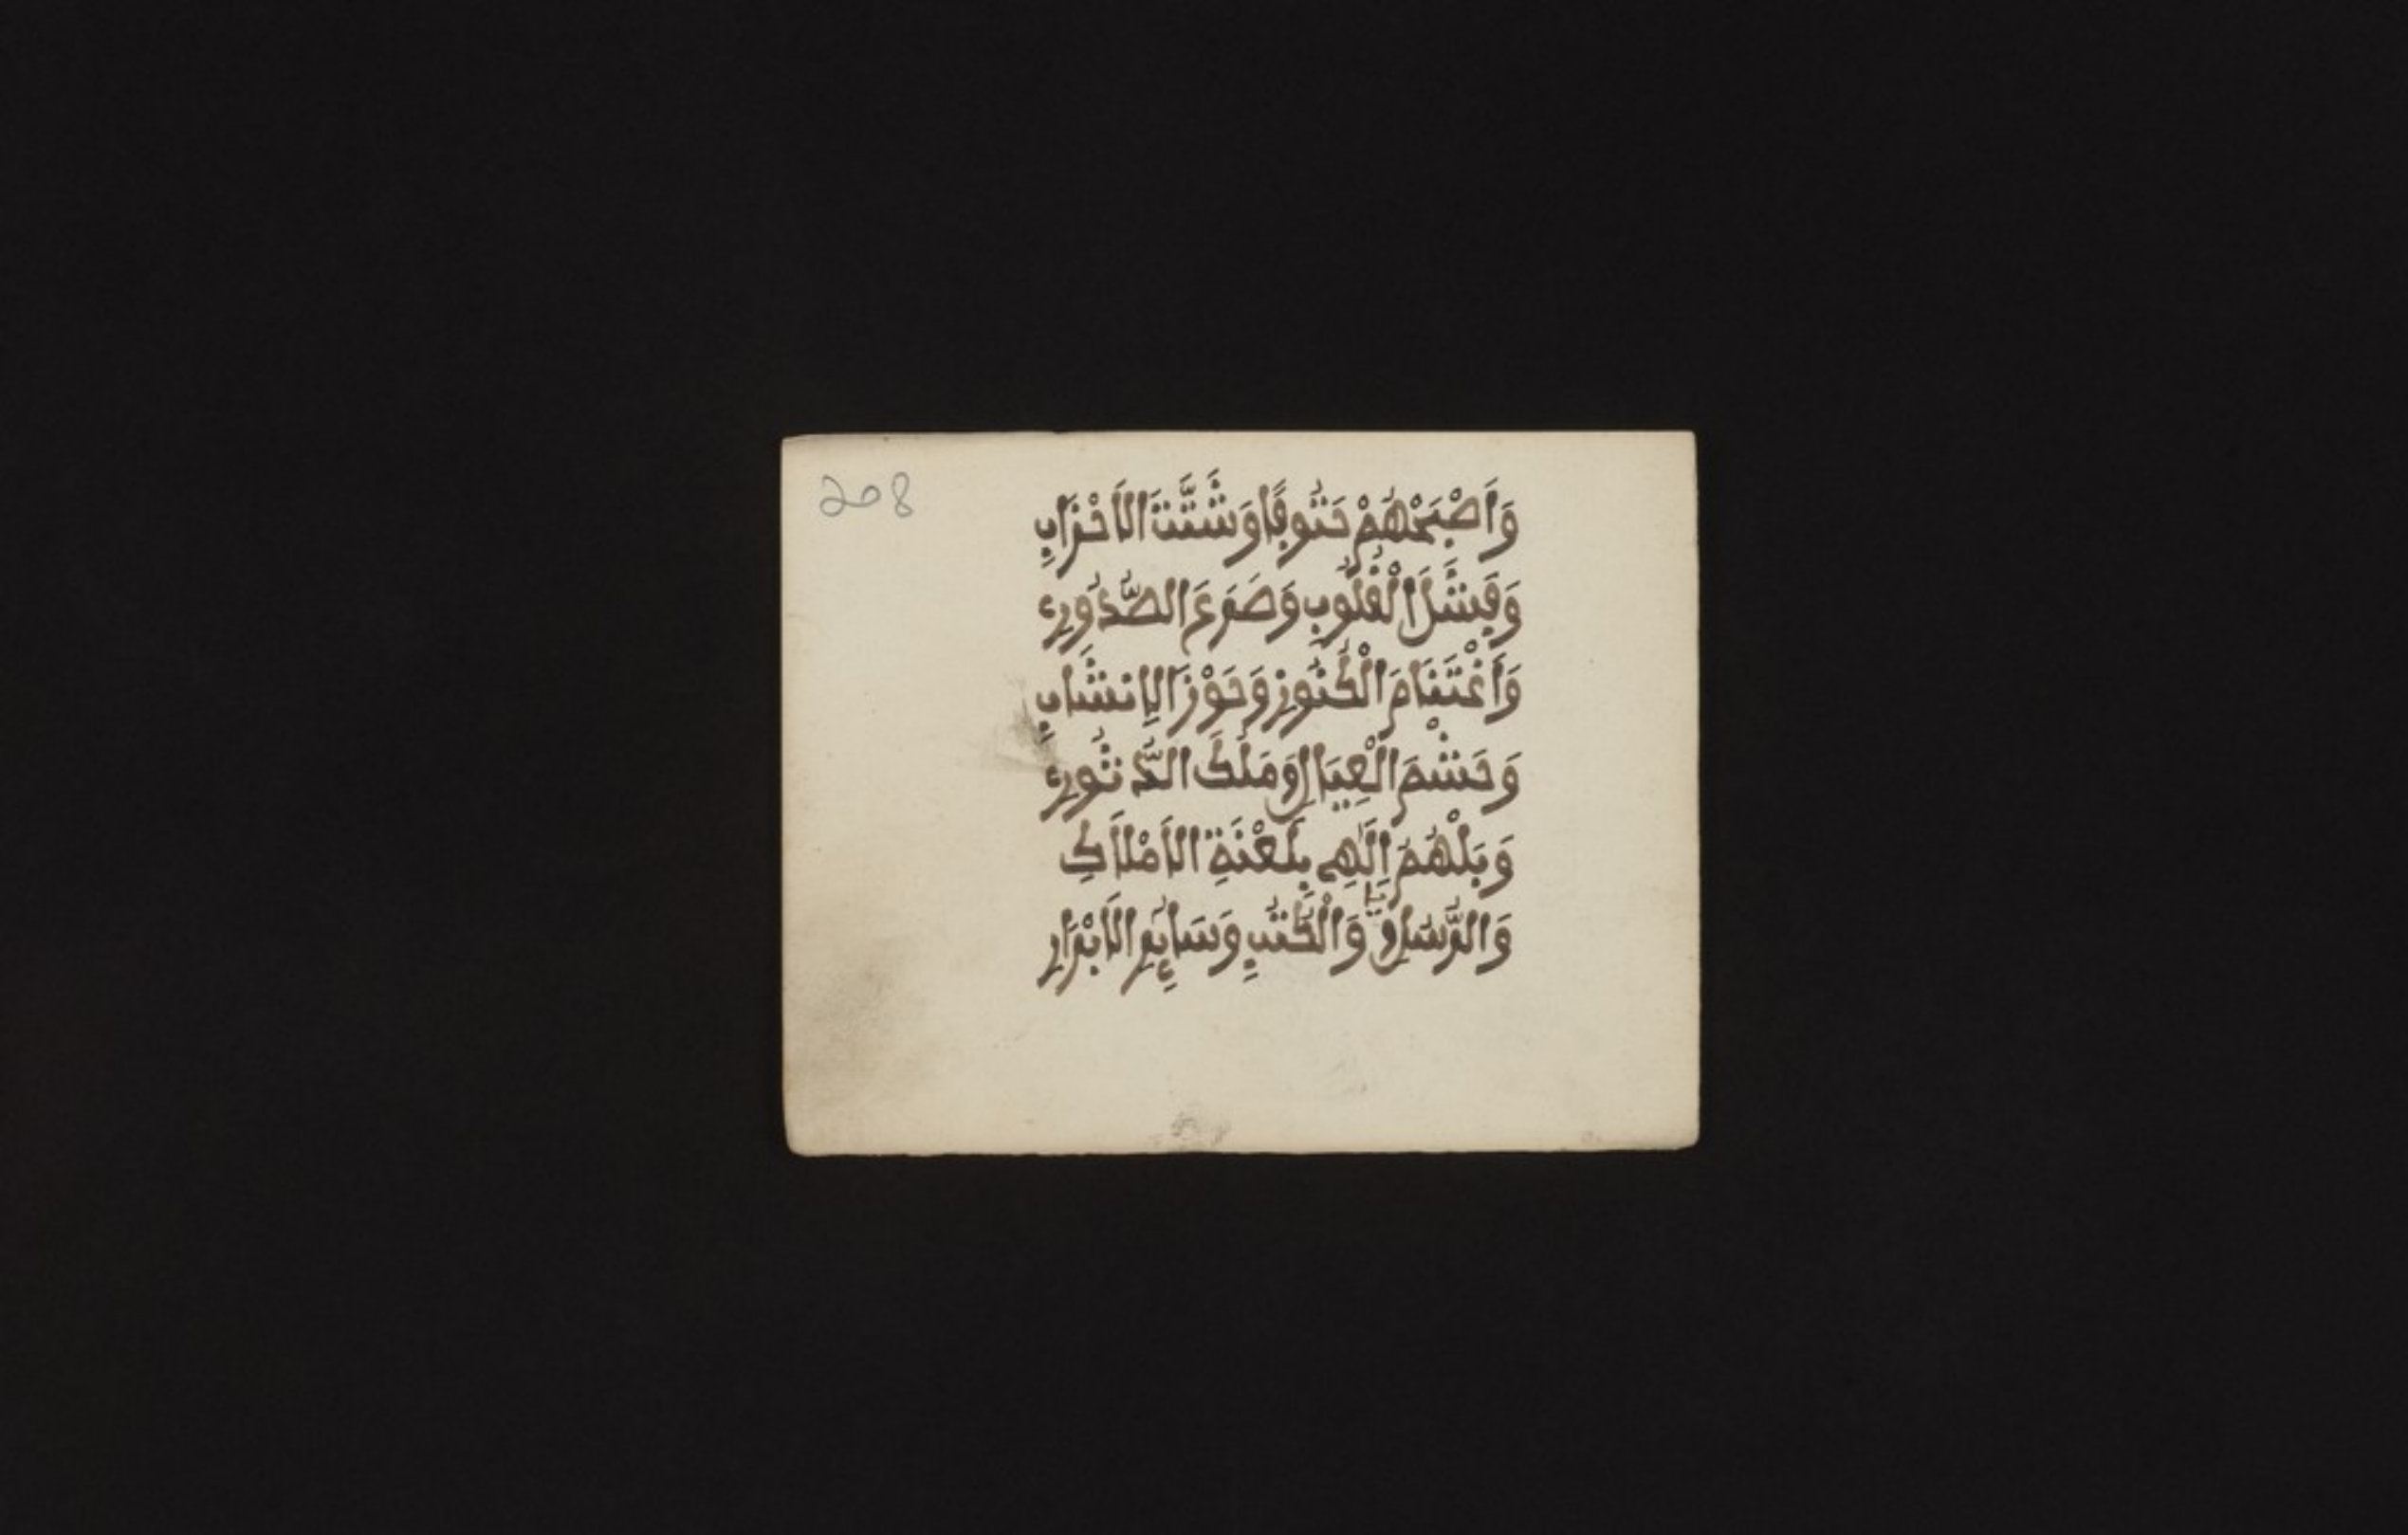 208
وَأَصْبَحْهُمْ حَتُوفًا وَشَتَّتَ الَاحْزَابِ
وَفِشَلَ الْقُلُوبِ وَضَرَعَ الصُّدُورِ
وَأَغْتَنَامَ الْكُنُوزِ وَحَوْزَ الِانشَابِ
وَحَشْمَ الْعِيَالِ وَمَلَكَ الدُّثُورِ
وَبَلْهُمُ إِلَٰهِي بِلَعْنَةِ الَامْلَاكِ
وَالرُّسُلِ وَالْكُتُبِ وَسَائِرِ الَابْرَارِ